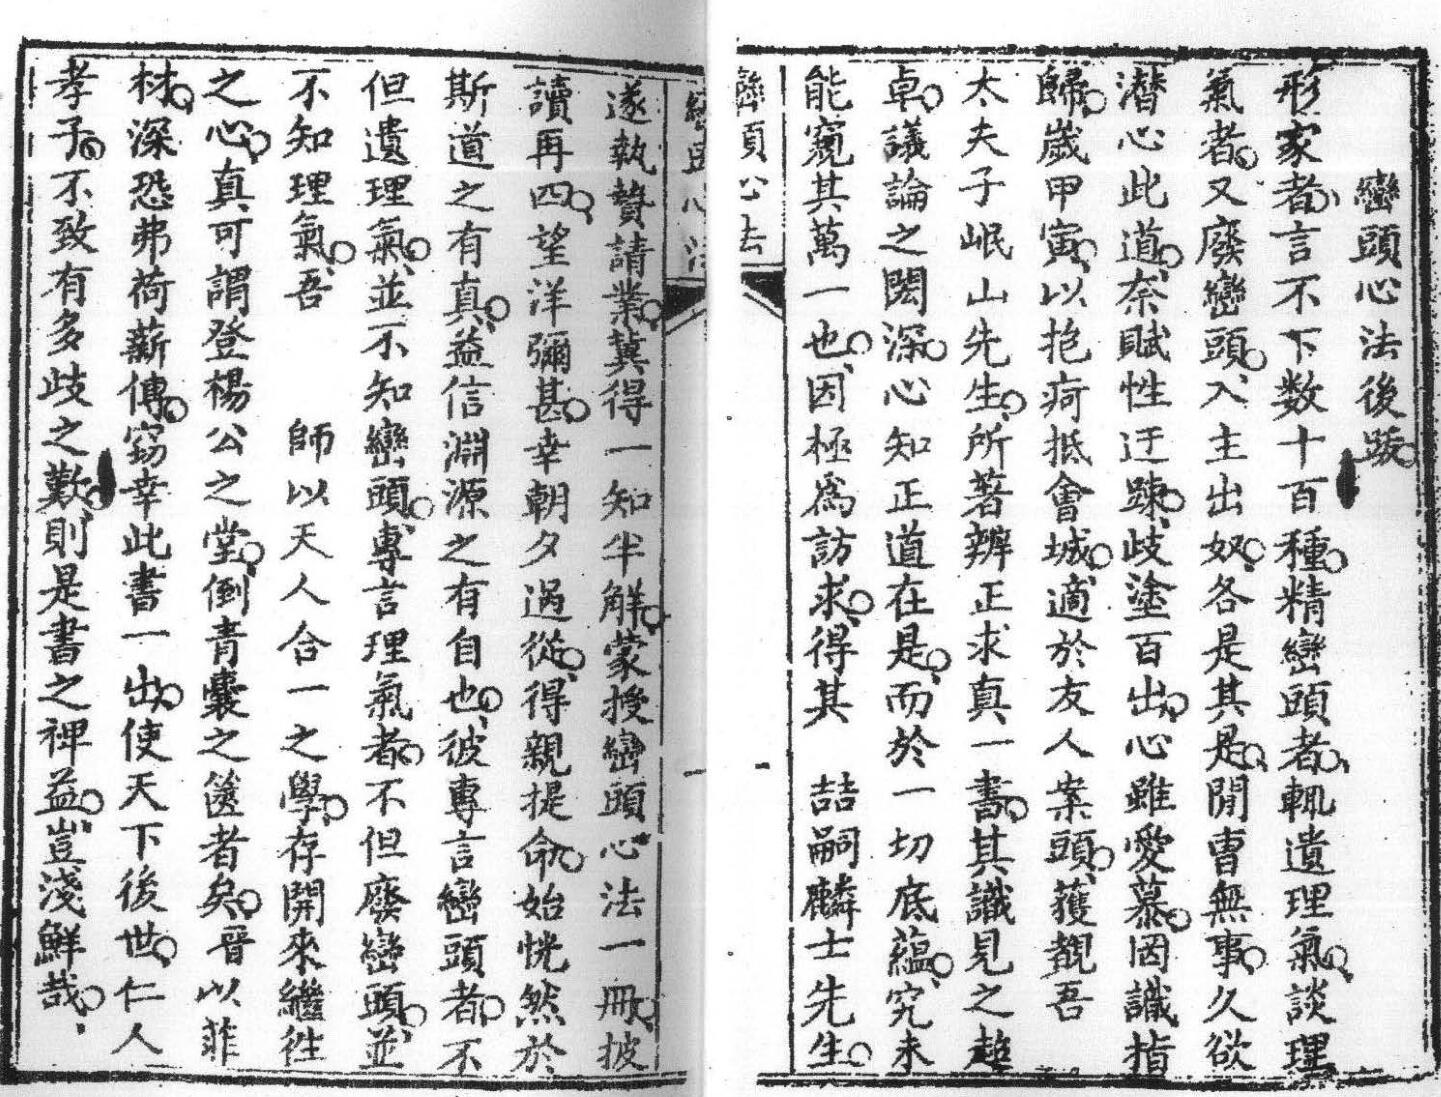 巒頭心法後跋
形家者言不下数十百種精巒頭者輒遺理氣談理
氣者又廢巒頭入主出奴各是其是閒曹無事久欲
潛心此道奈賦性迂踈歧塗百出心雖愛慕罔識指
歸歲甲寅以抱疴抵會城適於友人案頭獲覩吾
太夫子岷山先生所著辨正求真一書其識見之超
卓議論之閎深心知正道在是而於一切底蘊究未
能窺其萬一也因極為訪求得其 喆嗣麟士先生
巒頭心法
遂執贄請業冀得一知半解蒙授巒頭心法一冊披
讀再四望洋彌甚幸朝夕過從得親提命始恍然於
斯道之有真益信淵源之有自也彼專言巒頭者不
但遺理氣並不知巒頭專言理氣者不但廢巒頭並
不知理氣吾 師以天人合一之學存開來繼往
之心真可謂登楊公之堂倒青囊之篋者矣晉以菲
材深恐弗荷薪傳窃幸此書一出使天下後世仁人
孝子不致有多歧之歎則是書之裨益豈淺鮮哉